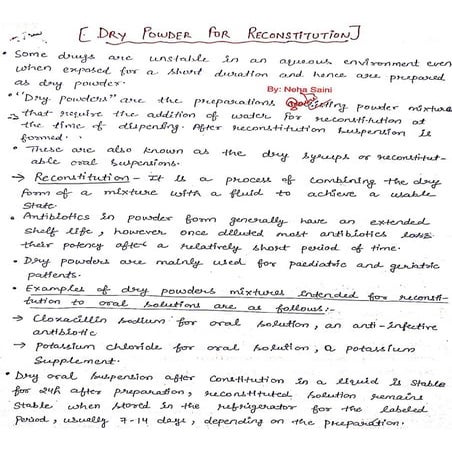 [ DRY POWDER FOR RECONSTITUTION]
• Some drugs are unstable in an aqueous environment even
when exposed for a short duration and hence are prepared
as dry powder.
By: Neha Saini
• "Dry powders" are the preparations powder mixture
→ that require the addition of water for reconstitution at
the time of dispending. After reconstitution suspension is
formed.
• These are also known as the dry syrups or reconstitut-
able oral suspensions.
→ Reconstitution - It is a process of combining the dry
form of a mixture with a fluid to achieve a usable
state.
• Antibiotics in powder form generally have an extended
shelf life, however once diluted most antibiotics
their potency after a relatively short period of time.
• Dry powders are mainly used for paediatric and geriatric
patients.
• Examples of dry powders mixtures intended for reconsti-
tution to oral solutions are as follows:-
→ Cloxacillin sodium for oral solution, an anti-infective
antibiotic
→ Potassium chloride for oral solution, a potassium
Supplement.
• Dry oral suspension after constitution in a liquid is stable
for 24h after preparation, reconstituted solution remains
stable when stored in the refrigerator for the labeled
period, usually 7-14 days, depending on the preparation.